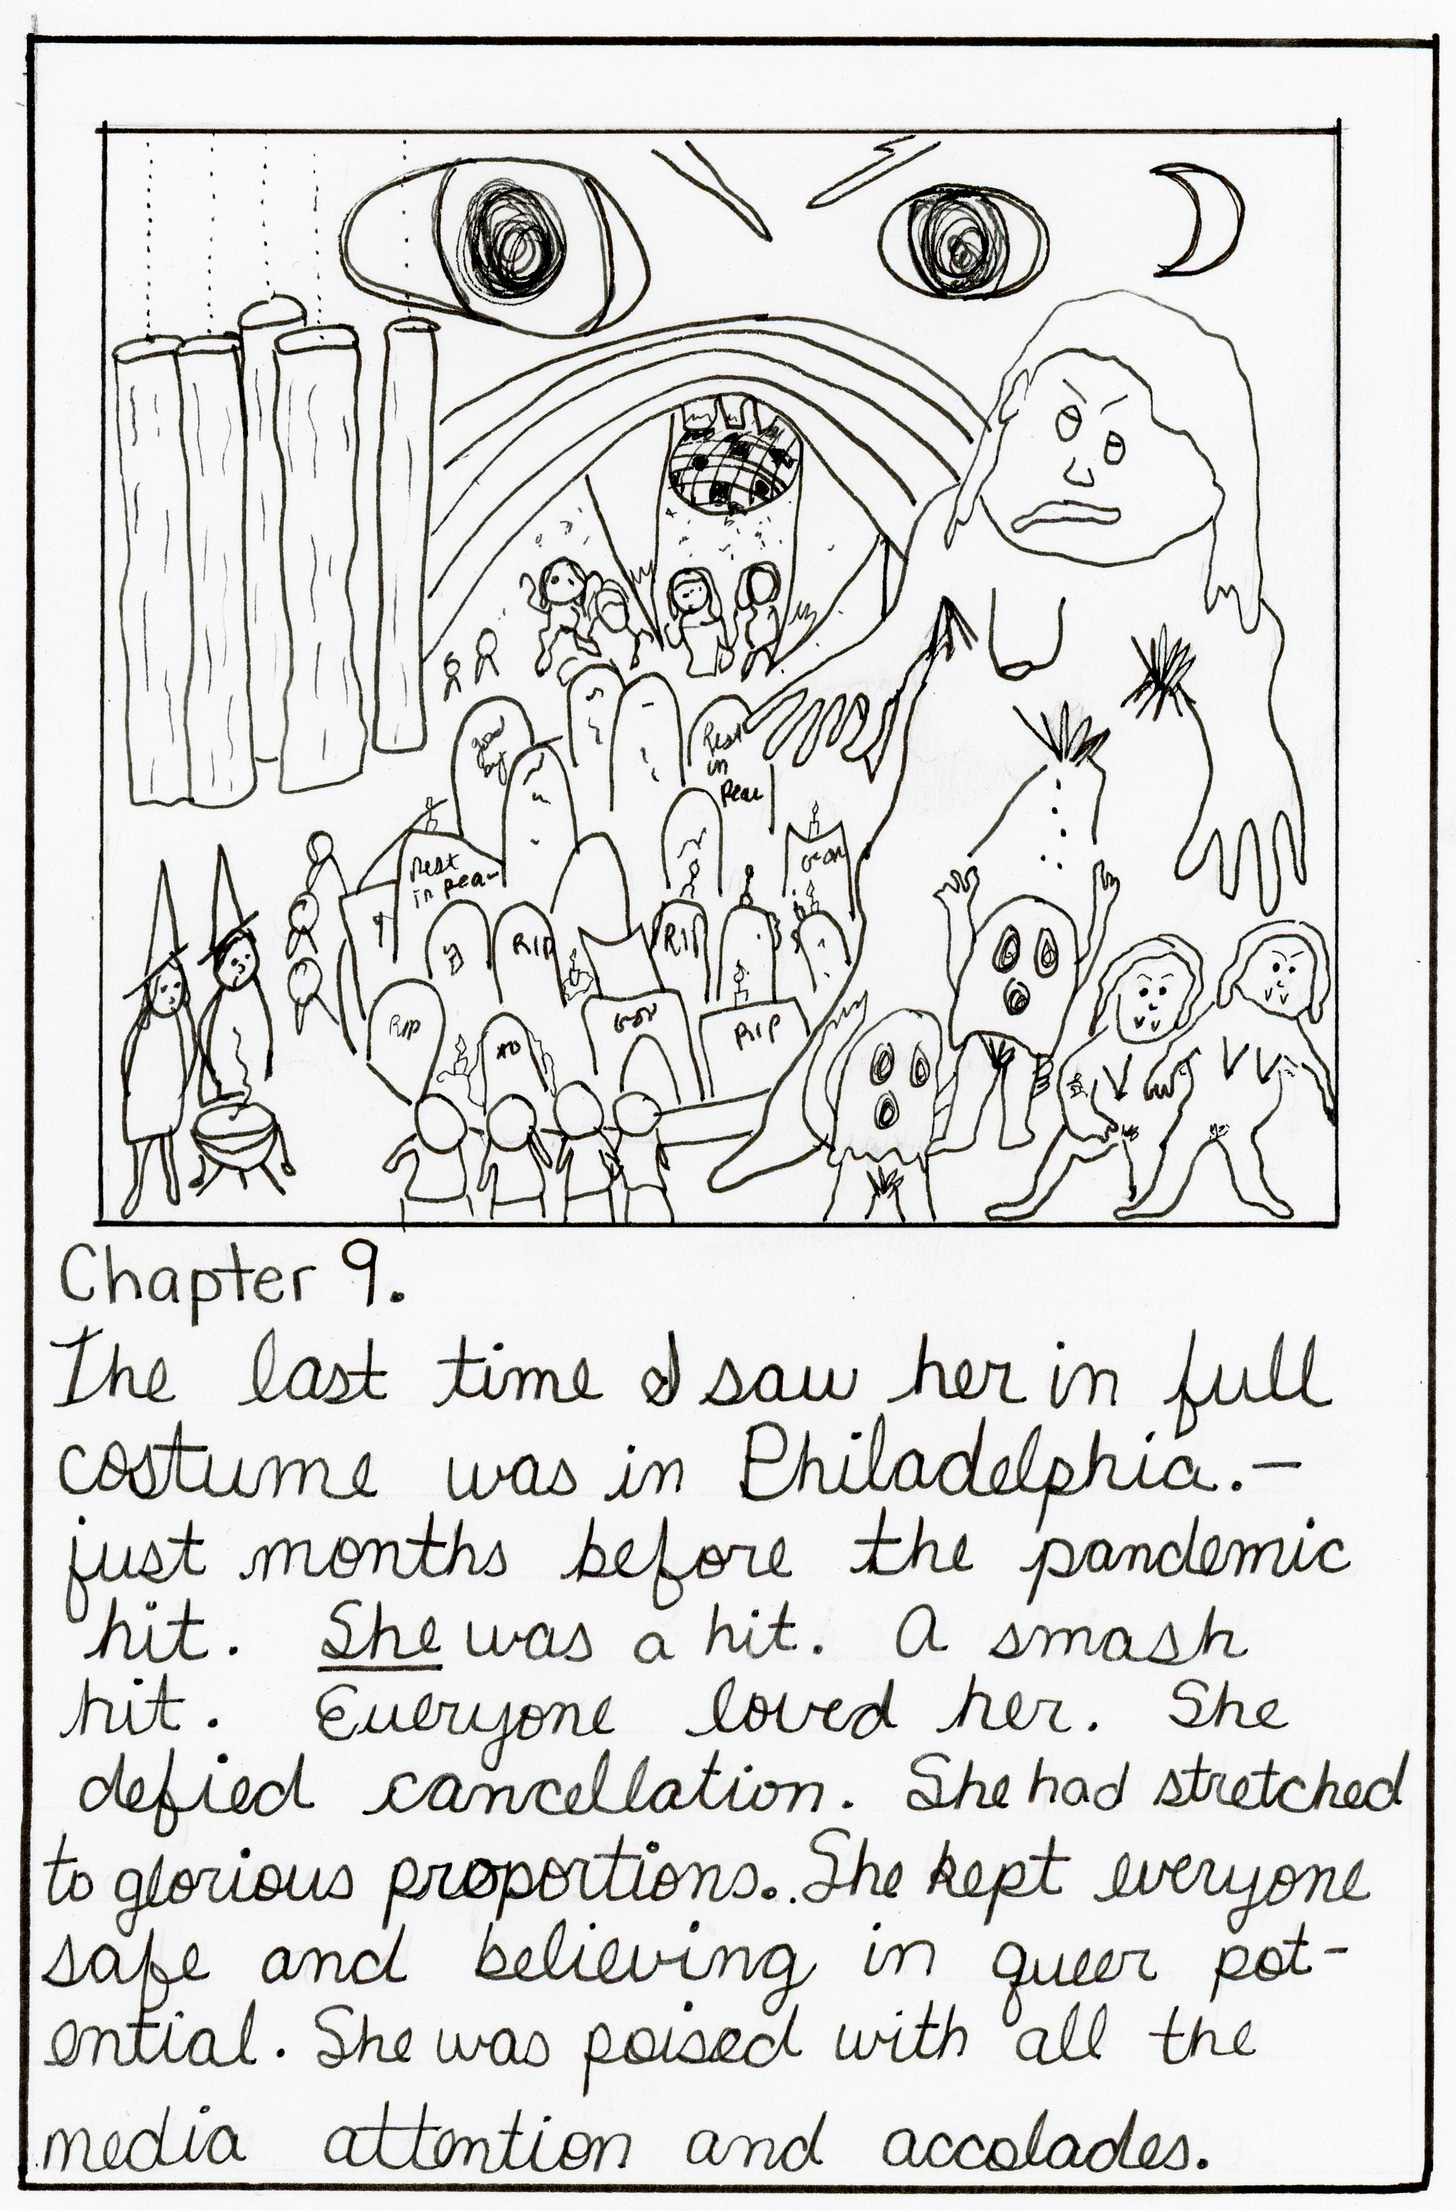 Rest
in
Peac
Rest
in peac
RIP
RIP
RIP
RIP
Chapter 9.
The last time I saw her in full
costume was in Philadelphia.—
just months before the pandemic
hit. She was a hit. A smash
hit. Everyone loved her. She
defied cancellation. She had stretched
to glorious proportions. She kept everyone
safe and believing in queer pot-
ential. She was poised with all the
media attention and accolades.